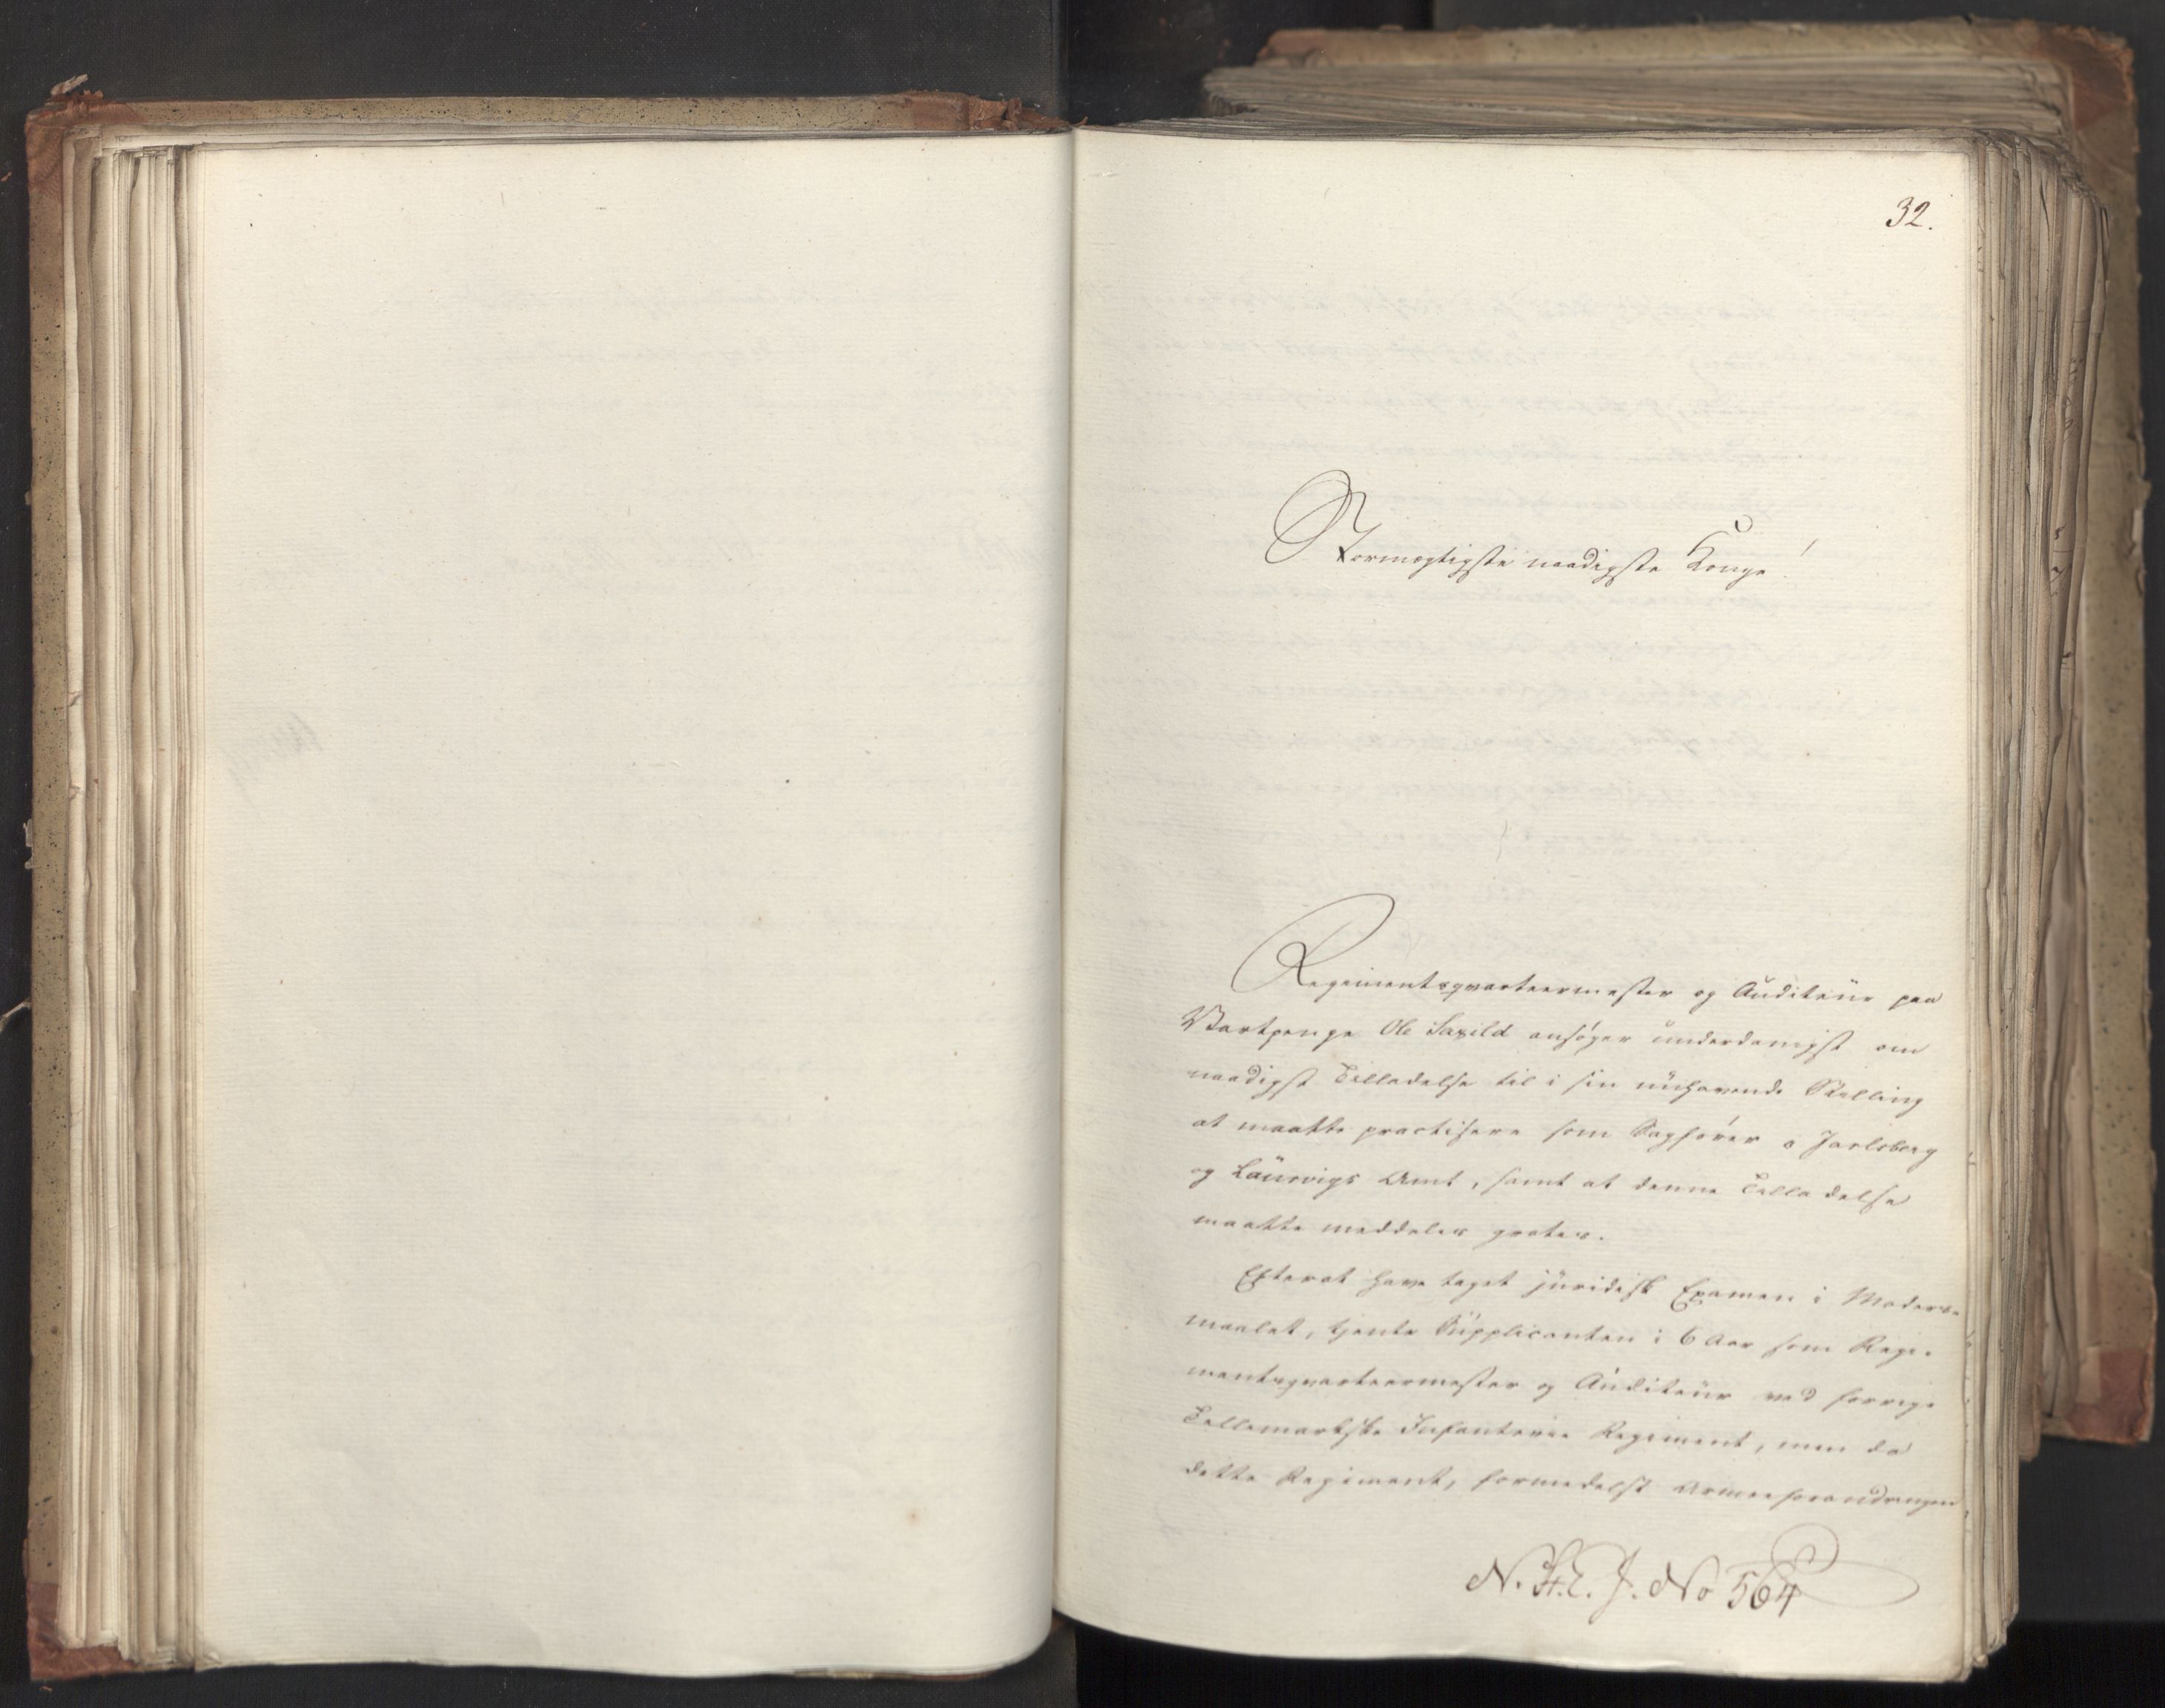 32.
Stormægtigste naadigste Konge!
Regimentsqvarteermester og Auditeur paa
Vartpenge Ole Saxild ansøger underdanigst om
naadigst Tilladelse til i sin nuhavende Stilling
at maatte practisere som Sagfører i Jarlsberg
og Laurvigs Amt, samt at denne Tilladelse
maatte meddeles gratis.
Efterat have taget juridisk Examen i Moders-
maalet, tjente Supplicanten i 6 Aar som Regi-
mentsqvarteermester og Auditeur ved forrige
Tellemarkske Infanterie Regiment, men da
dette Regiment, formedelst Armeeforandringen
N. St. E. J. No 564